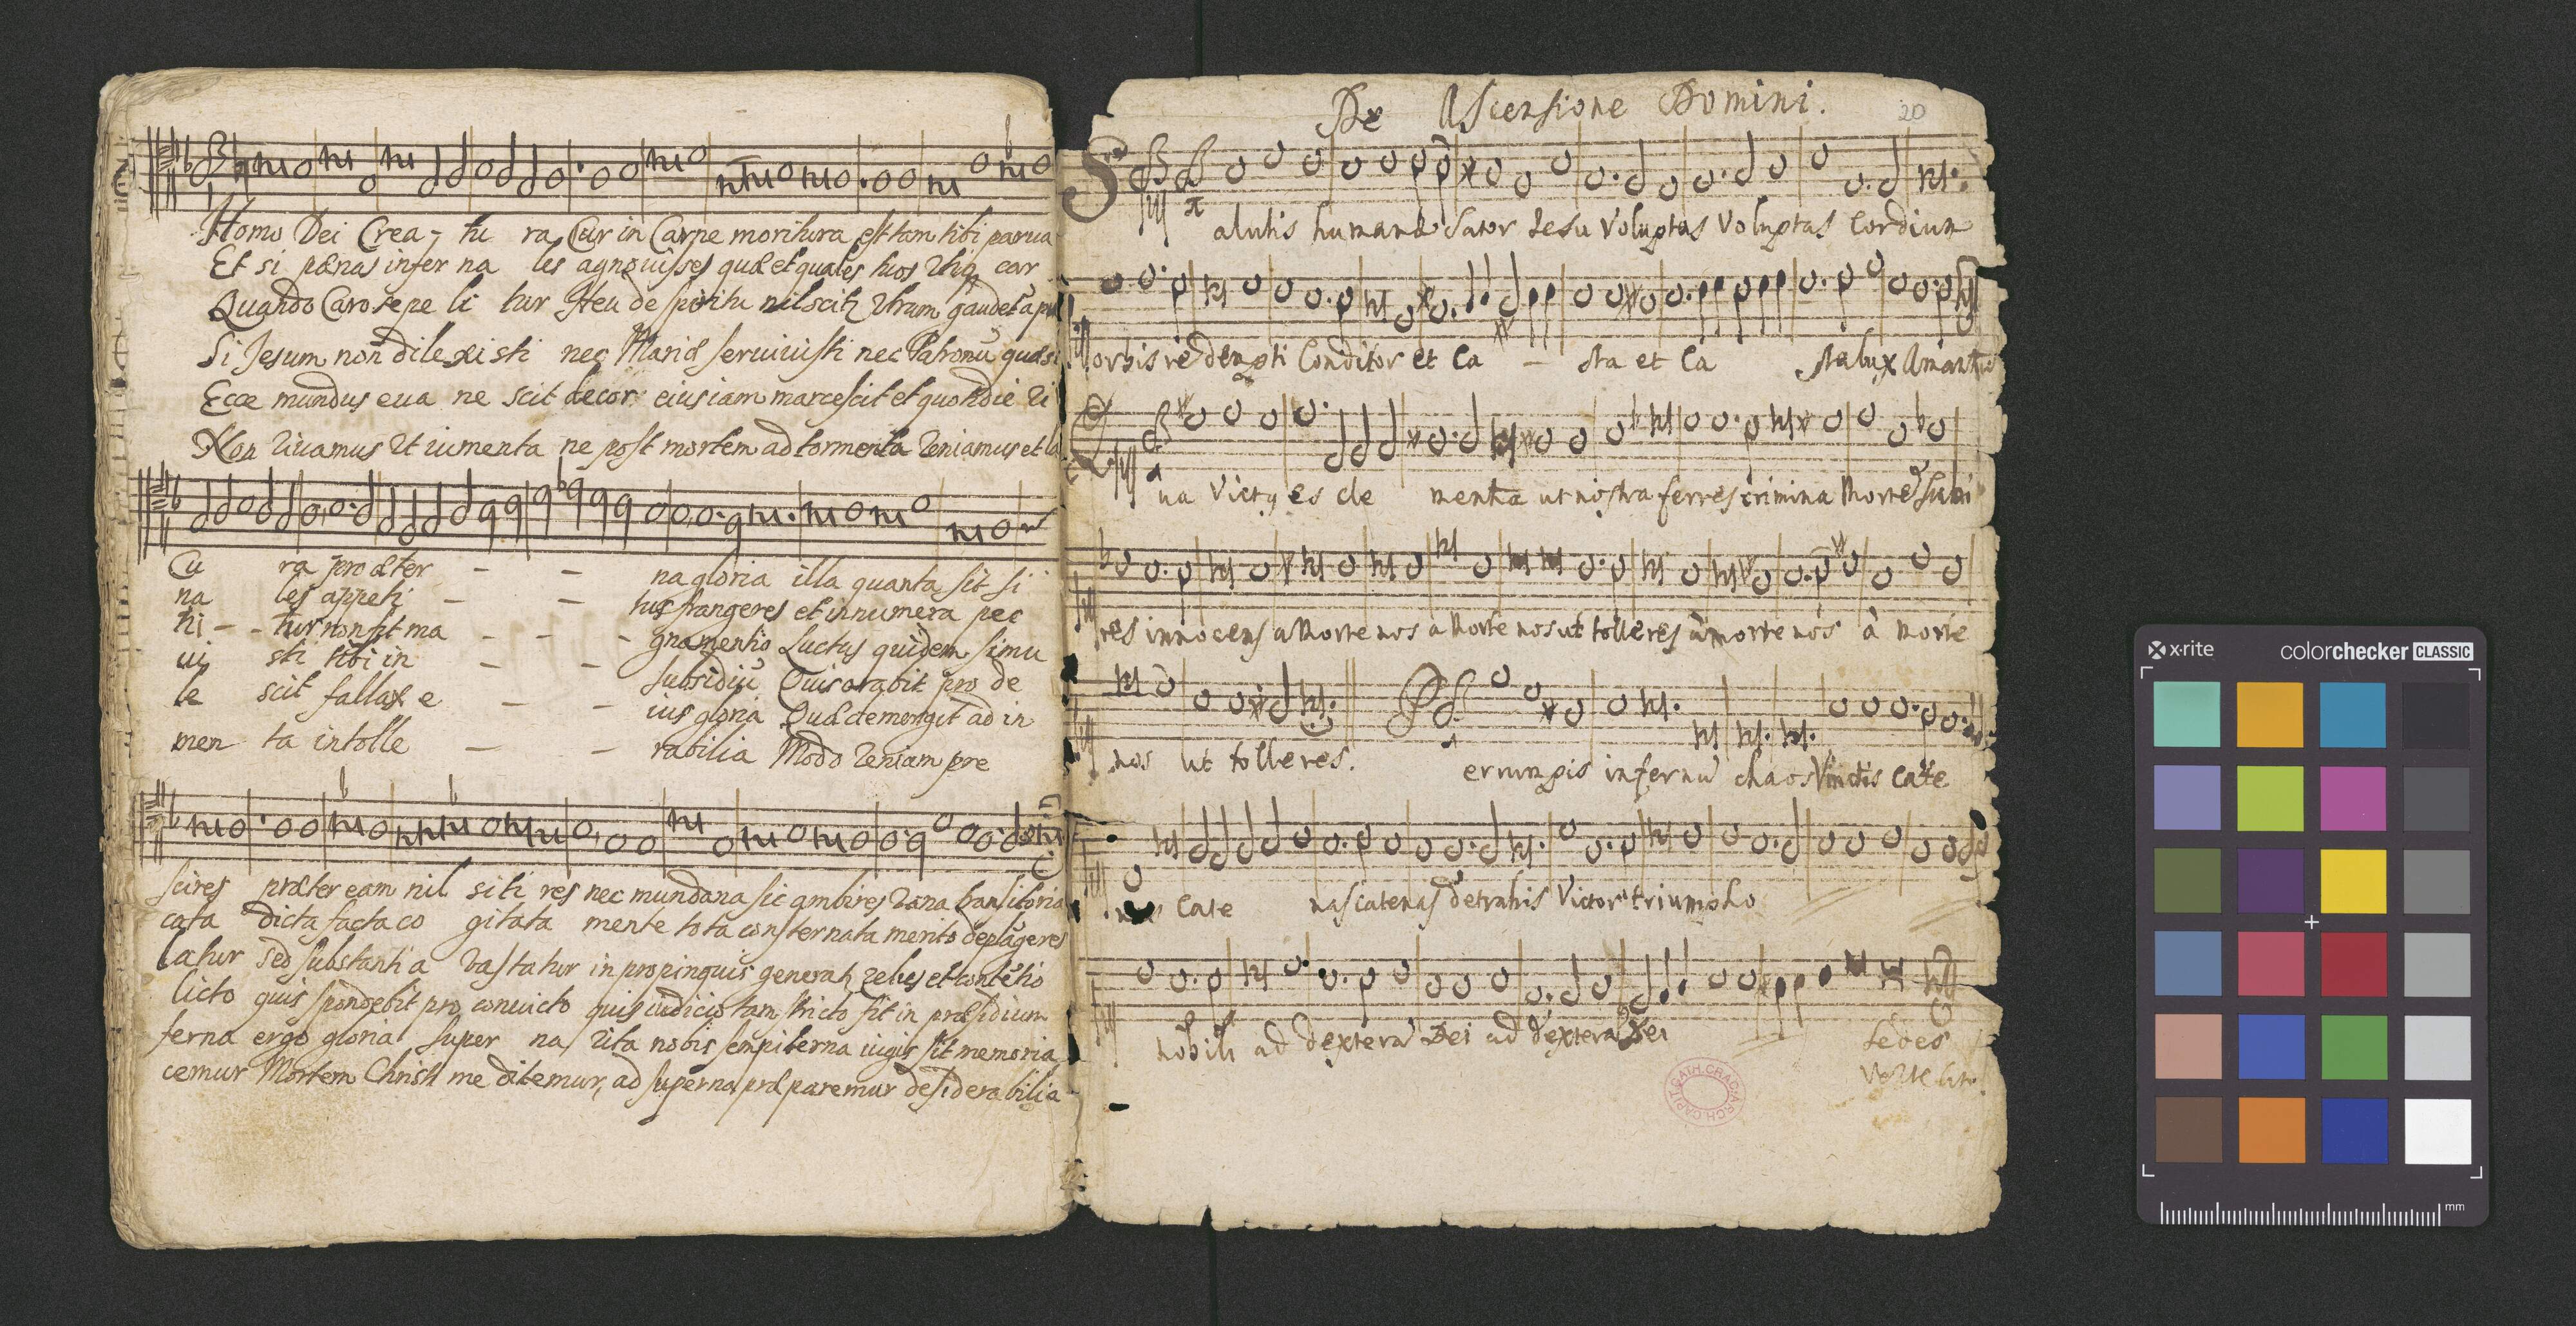 Homo Dei Crea- tu ra Cur in Carne moritura est tam tibi parua
Et si pœnas infer na les agnouisses quæ et quales tuos
Quando Caro sepe li tur Heu de spiritu nil scit Vtrum gaudet a
Si Jesum non dilexi sti nec Mariæ seruiuisti nec Patronū
Ecce mundus eua ne scit decor eius iam marcescit et quotidie Vi
Non Viuamus Vt iumenta ne post mortem ad tormenta Veniamus et la
Cu ra pro æter - - na gloria illa quanta sit si
na les appeti - - tus frangeres et innumera pec
ti - - tur non fit ma - - - gna mentio Luctus quidem simu
ui sti tibi in - - subsidiū Quis orabit pro de
le scit fallax e - - ius gloria Qui ad in
men ta intolle - - rabilia Modo Veniam pre
scires præter eam nil siti res nec mundana sic ambires Vana transitoria
cata dicta facta co gitata mente tota consternata merito deplāgeres
latur sed substanti a Vastatur in propinquis zelus et contētio
licto quis spondebit pro conuicto quis iudicio tam stricto sit in præsidium
ferna ergo gloria super na Vita nobis sempiterna iugis sit memoria
cemur Mortem Christi me ditemur, ad superna præparemur desiderabilia
De Ascensione Domini.
20
Salutis humanæ Sator Jesu Voluptas Voluptas Cordium
orbis redempti Conditor et Ca - sta et Ca sta lux Amantiū
Qua Victus es cle mentia ut nostra ferres crimina Morte Subi
res innocens a Morte nos a Morte nos ut tolleres à morte nos à Morte
nos ut tolleres. Perrumpis infernū chaos Vinctis Cate
nas Cate nas catenas detrahis Victor triumpho
nobili ad dexterā Dei ad dexterā Dei Sedes
ARCH.CAPIT.CATH.CRAC.
x·rite colorchecker CLASSIC
mm